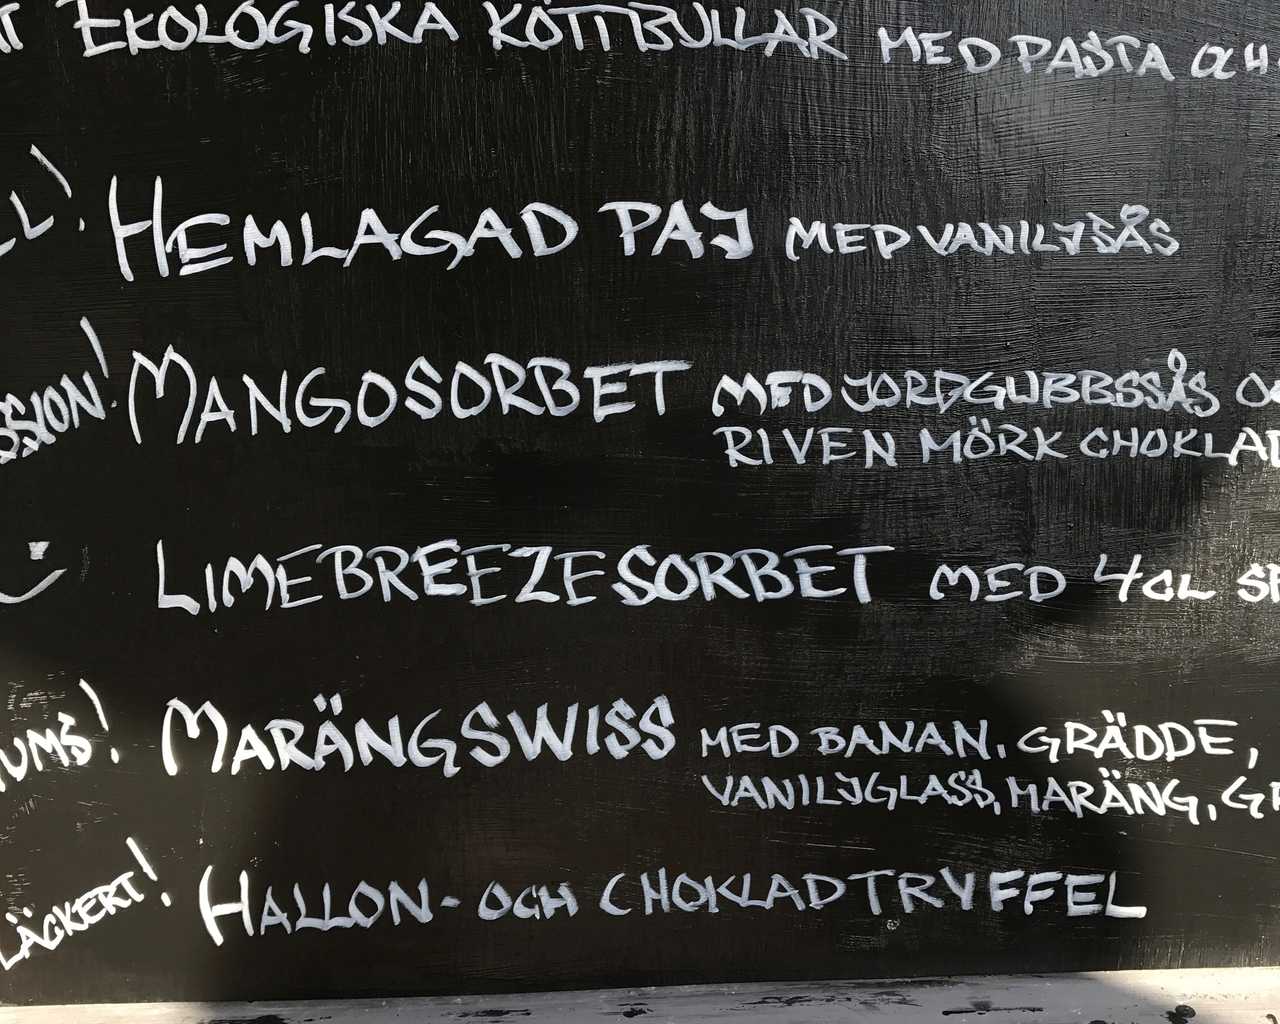 EKOLOGISKA KÖTTBULLAR MED PASTA OCH
HEMLAGAD PAJ MED VANILJSÅS
MANGOSORBET MED JORDGUBBSSÅS
RIVEN MÖRK CHOKLAD
LIMEBREEZESORBET MED 4CL
MARÄNGSWISS MED BANAN, GRÄDDE,
VANILJGLASS, MARÄNG,
LÄCKERT! HALLON- OCH CHOKLADTRYFFEL